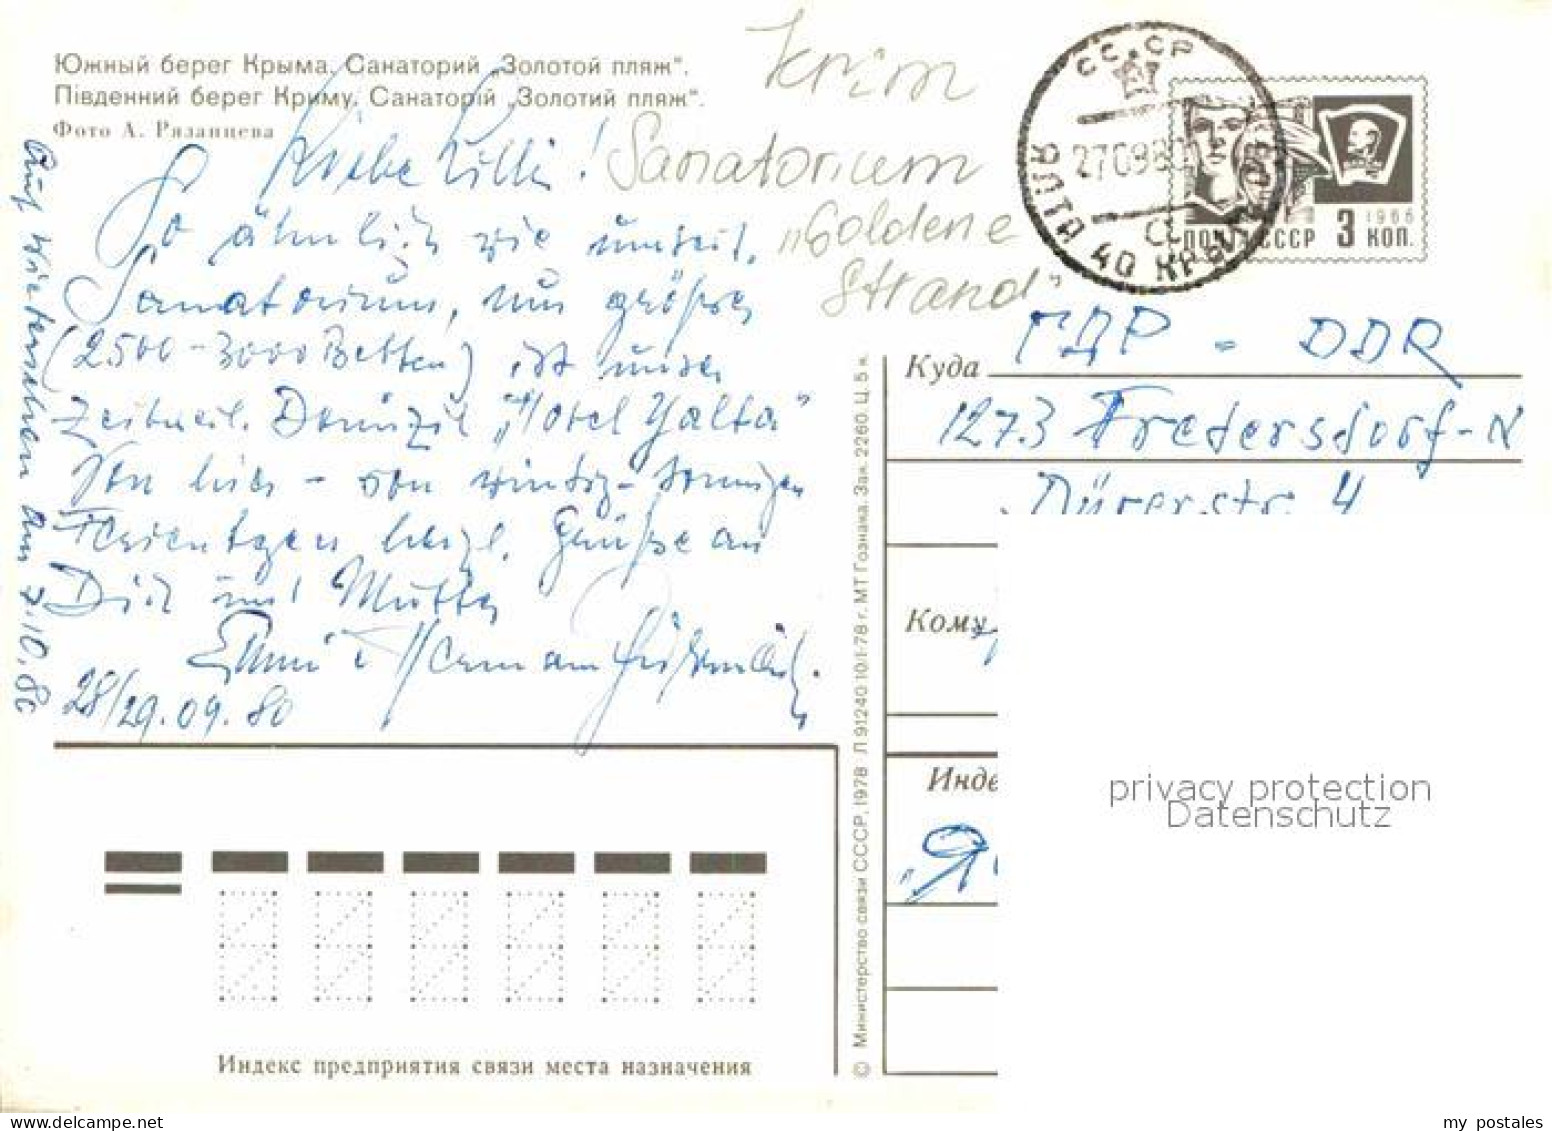 Южный берег Крыма. Санаторий „Золотой пляж".
Південний берег Криму. Санаторій „Золотий пляж".
Фото А. Рязанцева
Krim
Sanatorium
„Goldene
Strand"
Liebe Lilli!
So ähnlich wie umseit.
Sanatorium, nur größer
(2500-3000 Betten) ist unser
zeitweil. Domizil „Hotel Yalta"
Von hier - von windig-sonnigen
Ferientagen herzl. Grüße an
Dich und Mutter
28/29.09.80
Auf Wiedersehen am 7.10.80
СССР
270980
ЯЛТА 40 КРЫМ
ПОЧТА СССР 3 КОП.
1966
Куда
ГДР - DDR
1273 Fredersdorf-N
Dürerstr. 4
Кому
Инде
privacy protection
Datenschutz
© Министерство связи СССР, 1978 Л 91240 10/1-78 г. МТ Гознака. Зак. 2260. Ц. 5 к.
Индекс предприятия связи места назначения
my postales